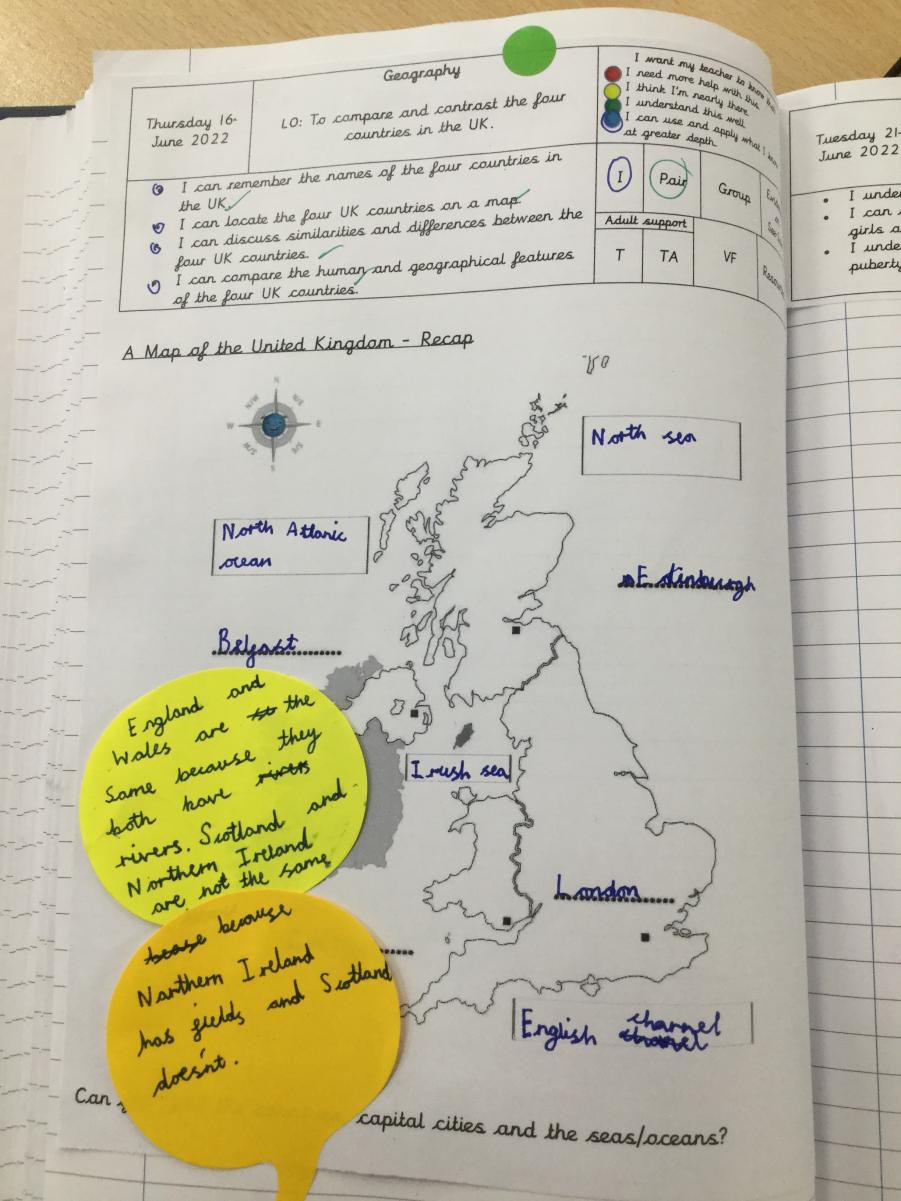 Geography
Thursday 16-
June 2022
LO: To compare and contrast the four
countries in the UK.
I want my teacher to know that
I need more help with this
I think I'm nearly there
I understand this well
I can use and apply what I know
at greater depth
I can remember the names of the four countries in
the UK.
I can locate the four UK countries on a map.
I can discuss similarities and differences between the
four UK countries.
I can compare the human and geographical features
of the four UK countries.
I
Pair
Group
Adult support
T
TA
VF
Tuesday 21-
June 2022
I unde
I can
girls a
I unde
puberty
A Map of the United Kingdom - Recap
N
N/E
E
S
W
N/W
North sea
North Atlanic
ocean
Edinburgh
Belfast
Irush sea
London
English channel
England and
Wales are the
same because they
both have rivers
rivers. Scotland and
Northern Ireland
are not the same
because
Narthern Ireland
has fields and Scotland
does'nt.
Can
capital cities and the seas/oceans?